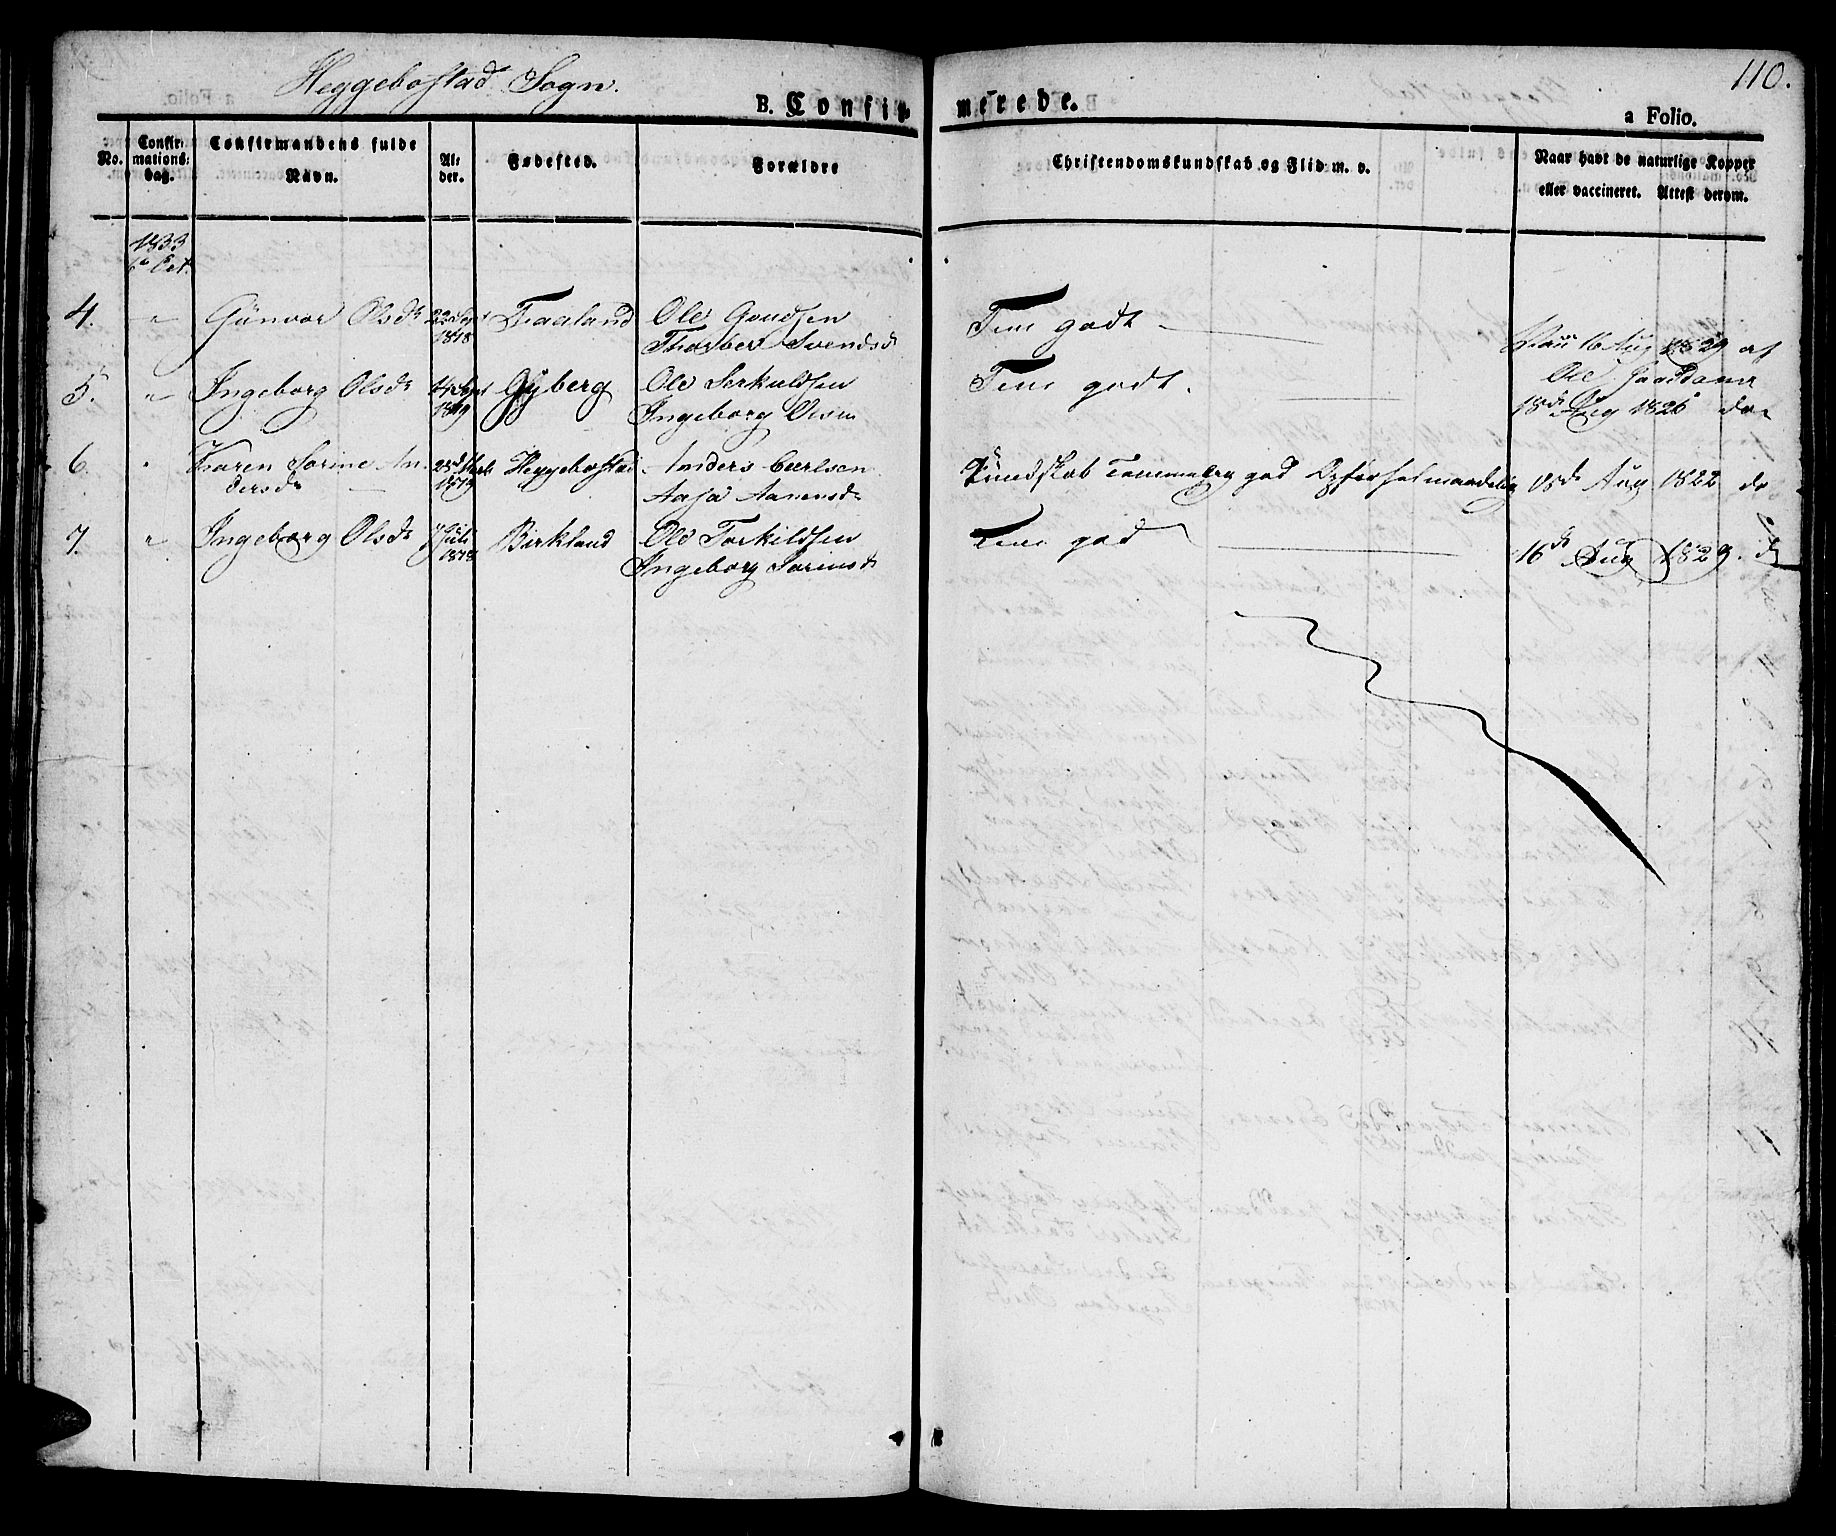 Heggebostad Sogn.
110.
B. Confir
merede.
a Folio.
No.
Confir
mations:
dag.
Confirmandens fulde
Navn.
Al:
der.
Fødested.
Forældre
Christendomskundskab og Flid m. v.
Naar havt de naturlige Kopper
eller vaccineret. Attest derom.
1833
6e Oct.
4. " Gunvor Olsdr 22 Sept 1818 Traaland Ole
Thorber Svendsdr
Tem godt
16 Aug 1829 af
Ole
5. " Ingeborg Olsdr 1819 Gyberg Ole
Ingeborg
Tem godt.
18de Aug 1826 do
6. " Karen Sorine An-
dersdr
1819 Heggebostad Anders Carlsen
Aasa Aanensdr
Kundskab Temmelig god Opførsel maadelig
18de Aug 1822 do
7. " Ingeborg Olsdr Juli 1818 Birkland Ole Torkildsen
Ingeborg
Tem god
16de Aug 1829. do